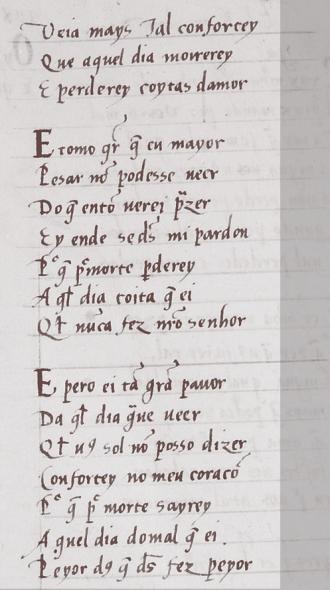 Veia mays Tal conforcey
Que aquel dia morrerey
E perderey coytas damor
E como gr̄ q̄ eu mayor
Pesar nō podesse veer
Do q̄ entō verei p̄zer
Ey ende se ds̄ mi pardon
Pᵉ q̄ pᵉ morte p̄derey
A ql̄ dia coita q̄ ei
Ql̄ nūca fez nr̄o senhor
E pero ei tā grā pauor
Da ql̄ dia ḡue veer
Ql̄ uꝯ sol nō posso dizer
Confortey no meu coraçō
Pᵉ q̄ pᵉ morte sayrey
Aquel dia do mal q̄ ei.
Peyor dꝯ q̄ ds̄ fez peyor